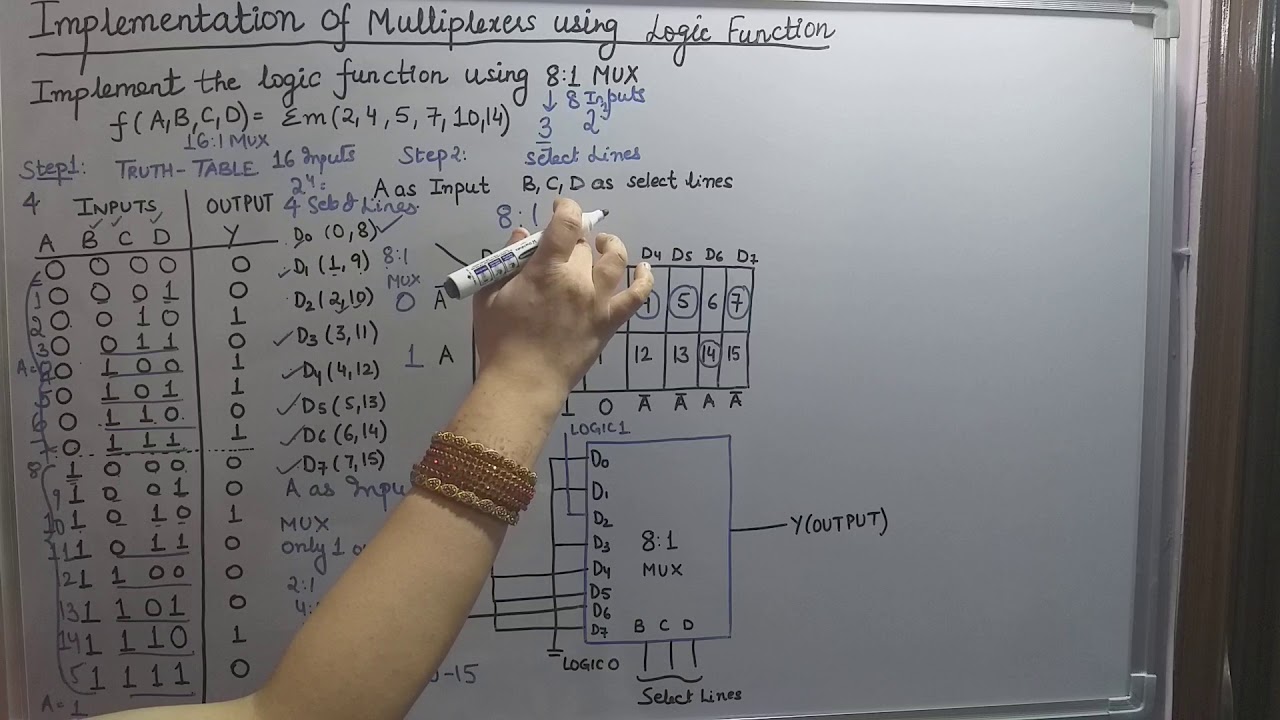 Implementation of Mulliplexers using Logic Function
Implement the logic function using 8:1 MUX
↓ 8 Inputs
f(A,B,C,D)= Σm(2,4,5,7,10,14) 3 2³
16:1 MUX
Step1: TRUTH-TABLE 16 Inputs Step2: Select Lines
2⁴= A as Input B, C, D as select lines
4 INPUTS OUTPUT 4 Select Lines 8:1
A B C D Y D0 (0,8) 8:1 D4 D5 D6 D7
0 0 0 0 0 D1 (1,9) MUX
1 0 0 0 1 0 D2 (2,10) 0 Ā 4 5 6 7
2 0 0 1 0 1
3 0 0 1 1 0 D3 (3,11)
A= 0 1 0 0 1 D4 (4,12) 1 A 12 13 14 15
5 0 1 0 1 1
6 0 1 1 0 0 D5 (5,13) 1 0 Ā Ā A Ā
7 0 1 1 1 1 D6 (6,14) LOGIC 1
8 1 0 0 0 0 D7 (7,15) D0
9 1 0 0 1 0 A as Inpu D1
10 1 0 1 0 1 MUX D2 Y(OUTPUT)
11 1 0 1 1 0 only 1 D3 8:1
12 1 1 0 0 0 D4 MUX
13 1 1 0 1 0 2:1 D5
14 1 1 1 0 1 4: D6 B C D
D7
5 1 1 1 1 0 -15 LOGIC 0
A=1 Select Lines